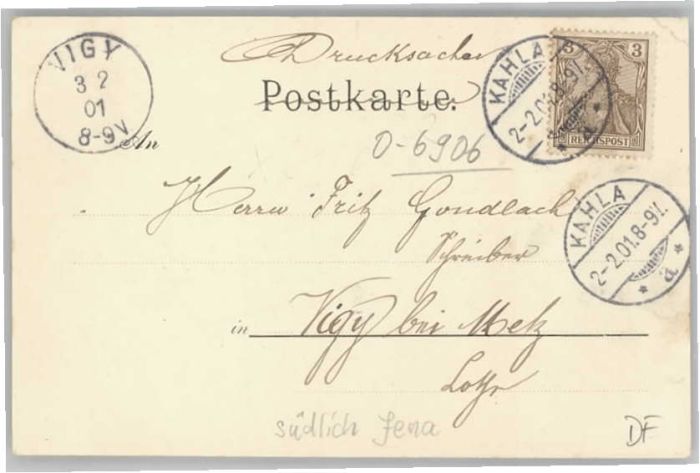 VIGY
3 2
01
8-9V
Drucksache
Postkarte.
KAHLA
2-2.01.8-9V.
* a *
3 3
REICHSPOST
An
0-6906
Herrn Fritz Gondlach
Schreiber
KAHLA
2-2.01.8-9V.
* a *
in Vigy bei Metz
Lothr
südlich Jena
DF